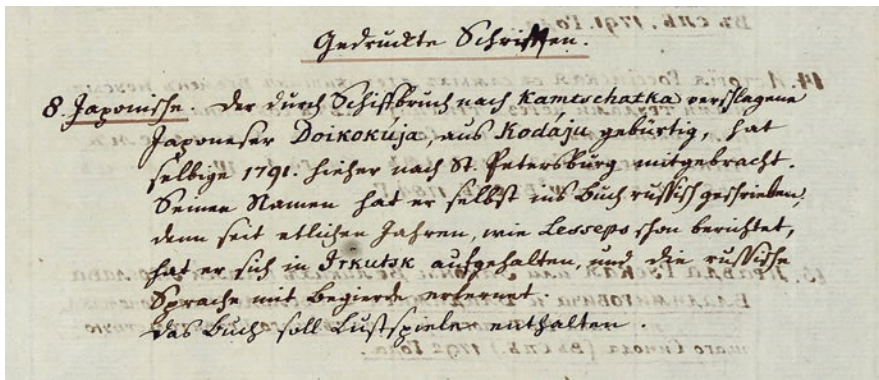 Gedruckte Schriften.
8. Japonische. Der durch Schiffbruch nach Kamtschatka verschlagene
Japoneser Doikokuja, aus Kodáju gebürtig, hat
selbige 1791. hieher nach St. Petersburg mitgebracht.
Seinen Namen hat er selbst ins Buch russisch geschrieben,
denn seit etlichen Jahren, wie Lesseps schon berichtet,
hat er sich in Irkutsk aufgehalten, und die russische
Sprache mit Begierde erlernet.
Das Buch soll Lustspiele enthalten.